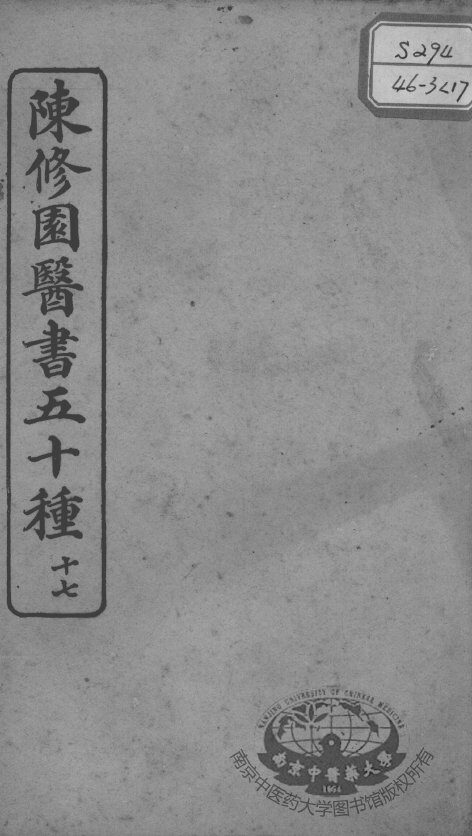 陳修園醫書五十種
十七
S294
46-3<17
NANJING UNIVERSITY OF CHINESE MEDICINE
南京中醫藥大學
1954
南京中医药大学图书馆版权所有